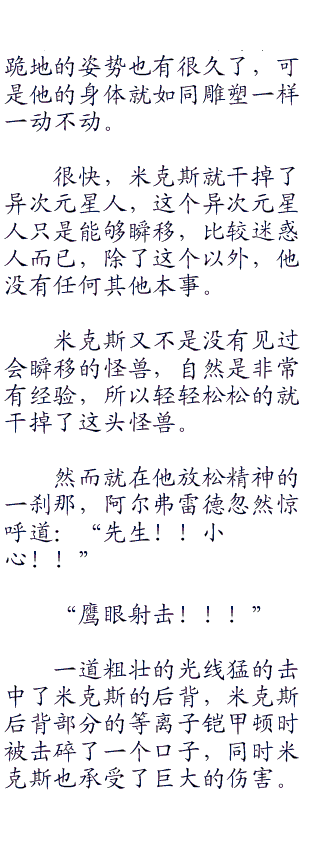 跪地的姿势也有很久了，可
是他的身体就如同雕塑一样
一动不动。
很快，米克斯就干掉了
异次元星人，这个异次元星
人只是能够瞬移，比较迷惑
人而已，除了这个以外，他
没有任何其他本事。
米克斯又不是没有见过
会瞬移的怪兽，自然是非常
有经验，所以轻轻松松的就
干掉了这头怪兽。
然而就在他放松精神的
一刹那，阿尔弗雷德忽然惊
呼道：“先生！！小
心！！”
“鹰眼射击！！！”
一道粗壮的光线猛的击
中了米克斯的后背，米克斯
后背部分的等离子铠甲顿时
被击碎了一个口子，同时米
克斯也承受了巨大的伤害。